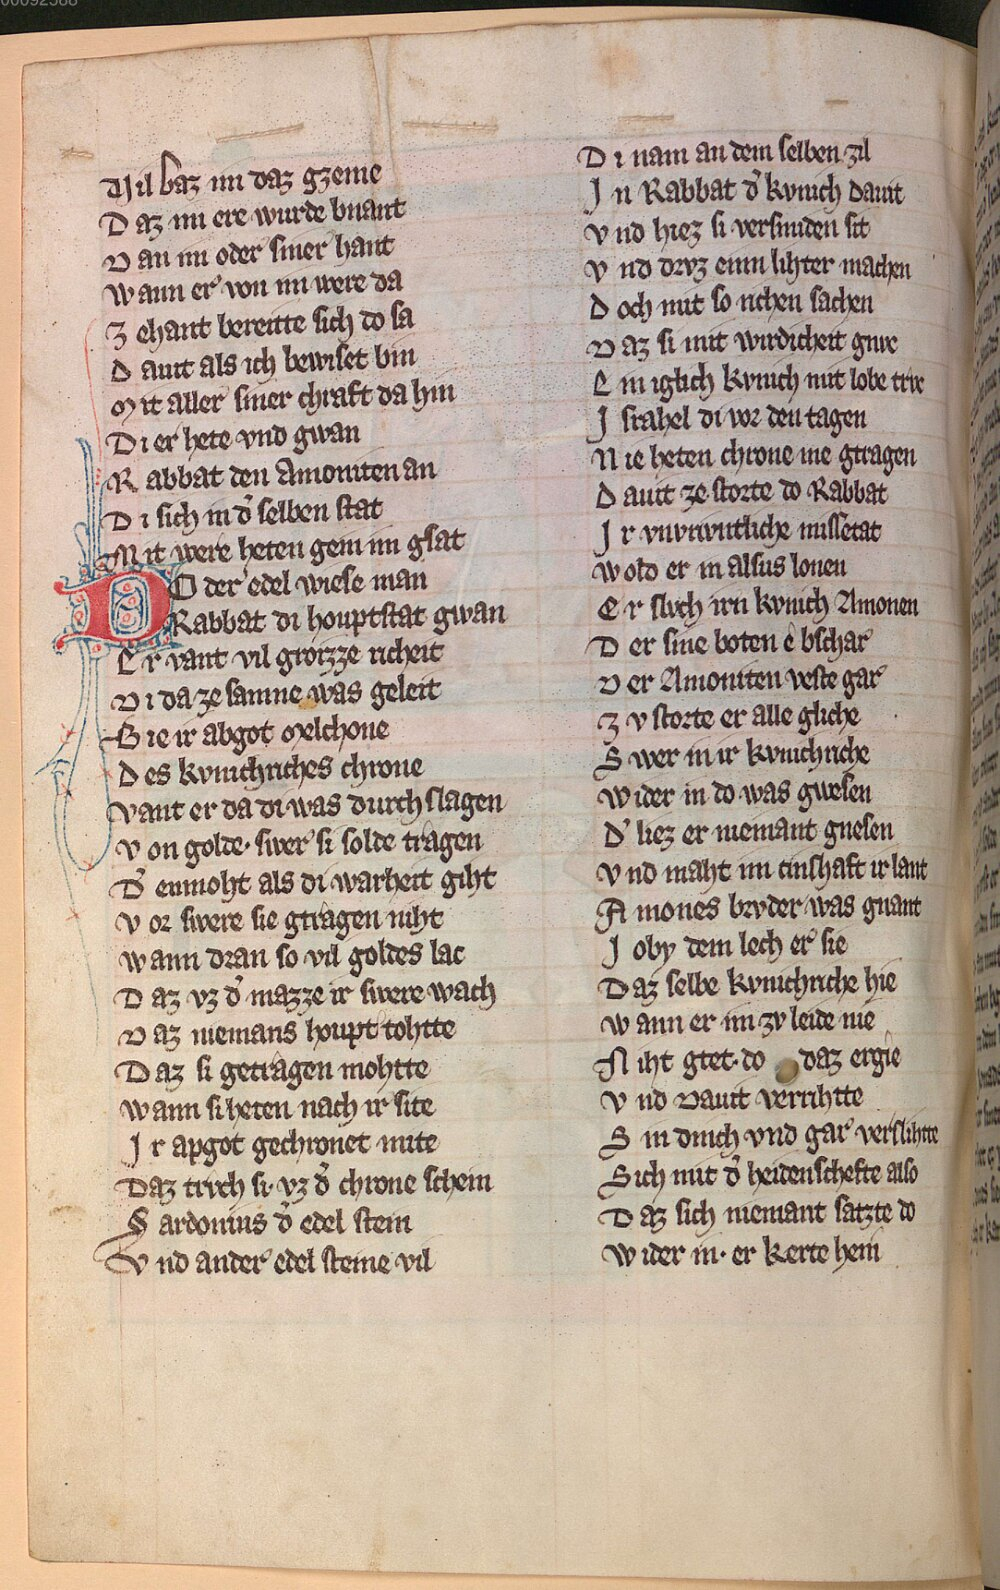 00092588
Vil baz im daz gzeme
Daz im ere wurde bnant
Dan im oder siner hant
Wann er von im were da
Zehant bereitte sich do sa
Dauit als ich bewiset bin
Mit aller siner chraft da hin
Di er hete vnd gwan
Rabbat den Amoniten an
Di sich in d̾ selben stat
Mit were heten gein im gsat
DO der edel wiese man
Rabbat di houptstat gwan
Er vant vil grozze richeit
Di da ze samne was geleit
Sie ir abgot Melchone
Des kvnichriches chrone
Vant er da di was durch slagen
Von golde· swer si solde tragen
D̾ enmoht als di warheit giht
Vor swere sie gtragen niht
Wann dran so vil goldes lac
Daz vz d̾ mazze ir swere wach
Daz niemans houpt tohtte
Daz si getragen mohtte
Wann si heten nach ir site
Ir apgot gechronet mite
Daz trvch si· vz d̾ chrone schein
Sardonius d̾ edel stein
Vnd ander edel steine vil
Di nam an dem selben zil
In Rabbat d̾ kvnich Dauit
Vnd hiez si versmiden sit
Vnd drvz einn lihter machen
Doch mit so richen sachen
Daz si mit wirdicheit gnvc
Ein iglich kvnich mit lobe trvc
Israhel di vor den tagen
Nie heten chrone me gtragen
Dauit ze storte do Rabbat
Ir vnvruntliche missetat
Wold er in alsus lonen
Er slvch irn kvnich Amonen
Der sine boten e bschar
Der Amoniten veste gar
Zv storte er alle gliche
Swer in ir kvnichriche
Wider in do was gwesen
D̾ liez er niemant gnesen
Vnd maht im cinshaft ir lant
Amones brvder was gnant
Joby dem lech er sie
Daz selbe kvnichriche hie
Wann er im zv leide nie
Niht gtet· do daz ergie
Vnd Dauit verrihtte
Sin dinch vnd gar verslihtte
Sich mit d̾ heidenschefte also
Daz sich niemant satzte do
Wider in· er kerte hein